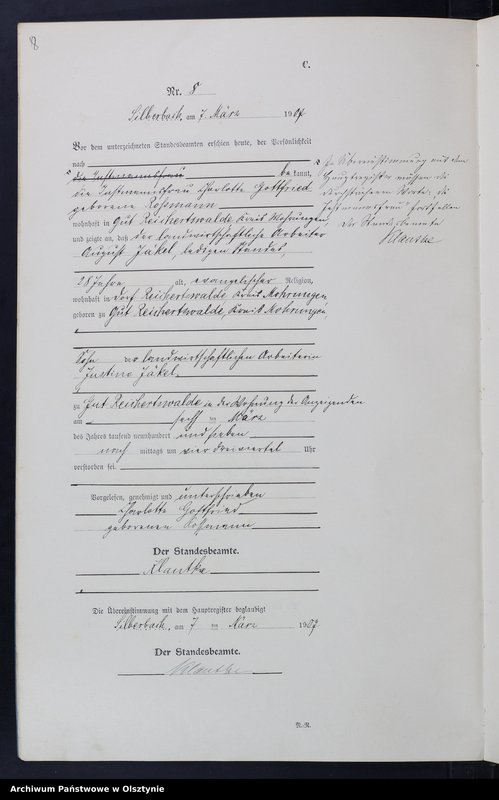 8
C.
Nr. 8
Silberbach am 7 März 1907
Vor dem unterzeichneten Standesbeamten erschien heute, der Persönlichkeit
nach
die Instmannsfrau bekannt,
die Instmannsfrau Charlotte Gottfried
geborene Rossmann
wohnhaft in Gut Reichertswalde, Kreis Mohrungen,
und zeigte an, daß der landwirtschaftliche Arbeiter
August Jäkel, ledigen Standes,
28 Jahre alt, evangelischer Religion,
wohnhaft in Dorf Reichertswalde Kreis Mohrungen,
geboren zu Gut Reichertswalde, Kreis Mohrungen,
Sohn der landwirtschaftlichen Arbeiterin
Justine Jäkel,
zu Gut Reichertswalde in der Wohnung der Anzeigenden
am sechs ten März
des Jahres tausend neunhundert und sieben
nachmittags um vier dreiviertel Uhr
verstorben sei.
Vorgelesen, genehmigt und unterschrieben
Charlotte Gottfried
geborene Rossmann
Der Standesbeamte.
Klautke
Die Übereinstimmung mit dem Hauptregister beglaubigt
Silberbach, am 7 ten März 1907
Der Standesbeamte.
Klautke
In Übereinstimmung mit dem
Hauptregister müssen die
durchstrichenen Worte: die
Instmannsfrau fortfallen
Der Standesbeamte
Klautke
N.-R.
Archiwum Państwowe w Olsztynie